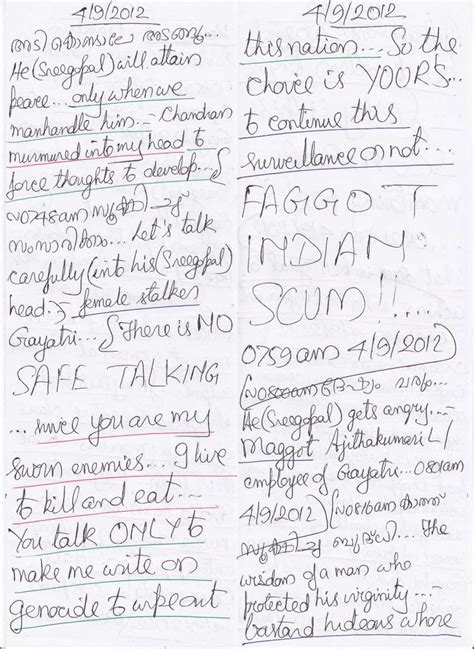 4/9/2012
He(Sreegopal) will attain
peace... only when we
manhandle him... Chandran
murmured into my head to
force thoughts to develop...
0748am
സംസാരിക്കാം... Let's talk
carefully (into his (Sreegopal)
head... female stalker
Gayatri... There is NO
SAFE TALKING
... since you are my
sworn enemies... I live
to kill and eat...
You talk ONLY to
make me write on
genocide to wipe out
4/9/2012
this nation... So the
choice is YOURS...
to continue this
surveillance or not...
FAGGOT
INDIAN
SCUM!!...
0759am 4/9/2012
He(Sreegopal) gets angry...
Maggot Ajithakumari L/
employee of Gayatri... 0801am
4/9/2012 0816am
... The
wisdom of a man who
protected his virginity...
bastard hideous whore